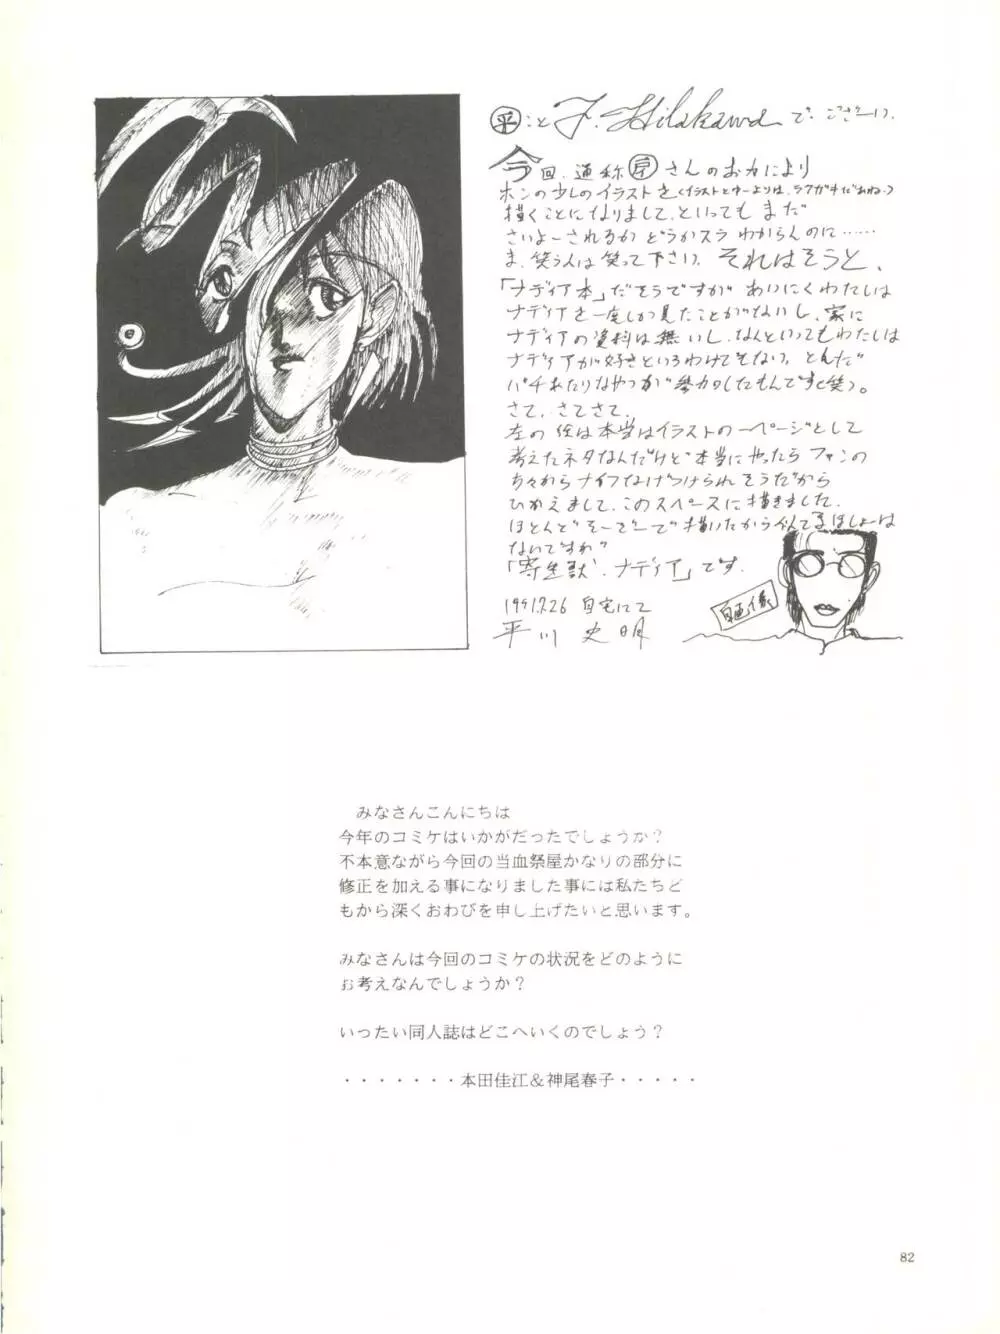 ㊥こと F. Hilakawa で ございい.
今回、通称 さんのおカにより
ホンの少しのイラストを(イラストとゆーよりは、ラフガキだあね。)
描くことになりまして、といっても まだ
さいよーされるか どうかスラ わからんのに……
ま、笑う人は笑って下さい。 それはそうと、
「ナディア本」だそうですが あいにくわたしは
ナディアを一度しか見たことがないし、家に
ナディアの資料は無いし、なんといってもわたしは
ナディアが好きというわけでもない。とんだ
バチあたりなやつが参加したもんです(笑)。
さて、さてさて、
左の絵は本当はイラストの一ページとして
考えたネタなんだけど本当にやったら ファンの
方々からナイフなげつけられそうだから
ひかえまして、このスペースに描きました.
ほとんどそーぞーで描いたから似てるほしょーは
ないですわ"
「寄生獣・ナディア」です.
1991.7.26 自宅にて
平川 史明
自画像
みなさんこんにちは
今年のコミケはいかがだったでしょうか？
不本意ながら今回の当血祭屋かなりの部分に
修正を加える事になりました事には私たちど
もから深くおわびを申し上げたいと思います。
みなさんは今回のコミケの状況をどのように
お考えなんでしょうか？
いったい同人誌はどこへいくのでしょう？
・・・・・・・本田佳江＆神尾春子・・・・・
82